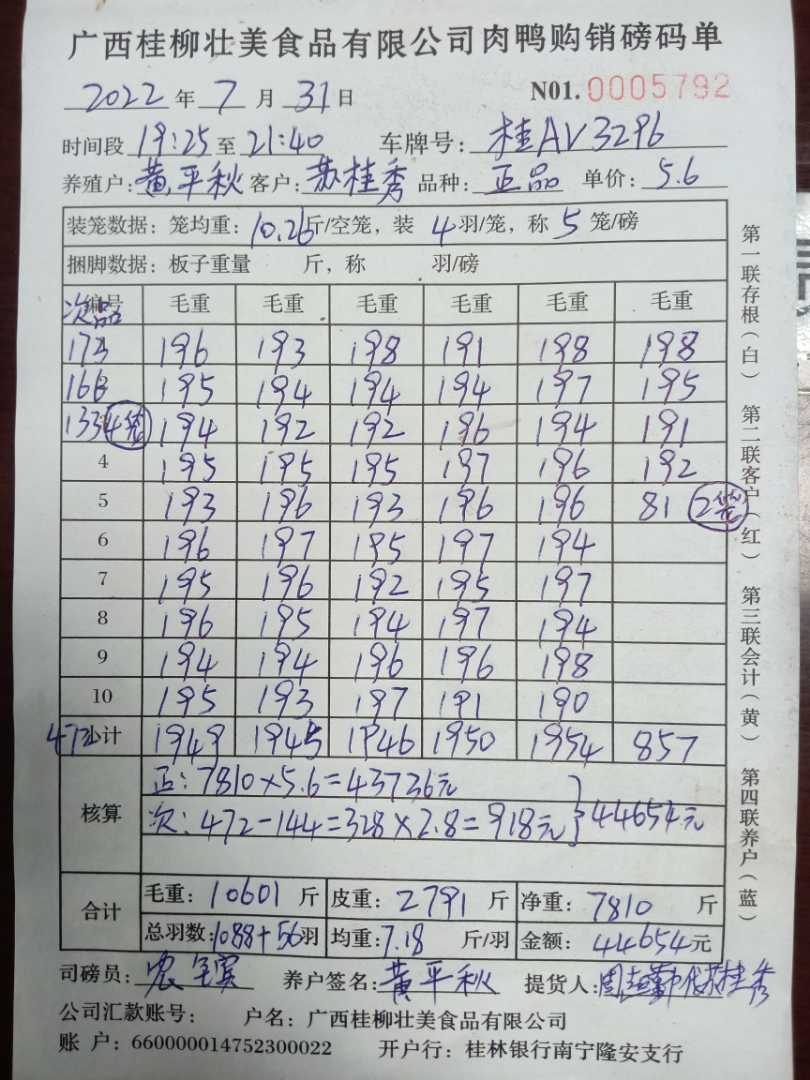 广西桂柳壮美食品有限公司肉鸭购销磅码单
2022年7月31日 N01.0005792
时间段19:25至21:40 车牌号:桂AV3296
养殖户:黄平秋 客户:苏桂秀 品种:正品 单价:5.6
装笼数据:笼均重:10.26斤/空笼,装4羽/笼,称5笼/磅
捆脚数据:板子重量 斤,称 羽/磅
次品 编号 毛重 毛重 毛重 毛重 毛重 毛重
173 196 193 198 191 198 198
166 195 194 194 194 197 195
133 4笼 194 192 192 196 194 191
4 195 195 195 197 196 192
5 193 196 193 196 196 81 2笼
6 196 197 195 197 194
7 195 196 192 195 197
8 196 195 194 197 194
9 194 194 196 196 198
10 195 193 197 191 190
472 小计 1949 1945 1946 1950 1954 857
核算
正:7810×5.6=43736元
次:472-144=328×2.8=918元 }44654元
合计
毛重:10601斤 皮重:2791斤 净重:7810斤
总羽数:1088+56羽 均重:7.18斤/羽 金额:44654元
司磅员: 养户签名:黄平秋 提货人:代苏桂秀
公司汇款账号: 户名:广西桂柳壮美食品有限公司
账 户:660000014752300022 开户行:桂林银行南宁隆安支行
第一联存根(白) 第二联客户(红) 第三联会计(黄) 第四联养户(蓝)